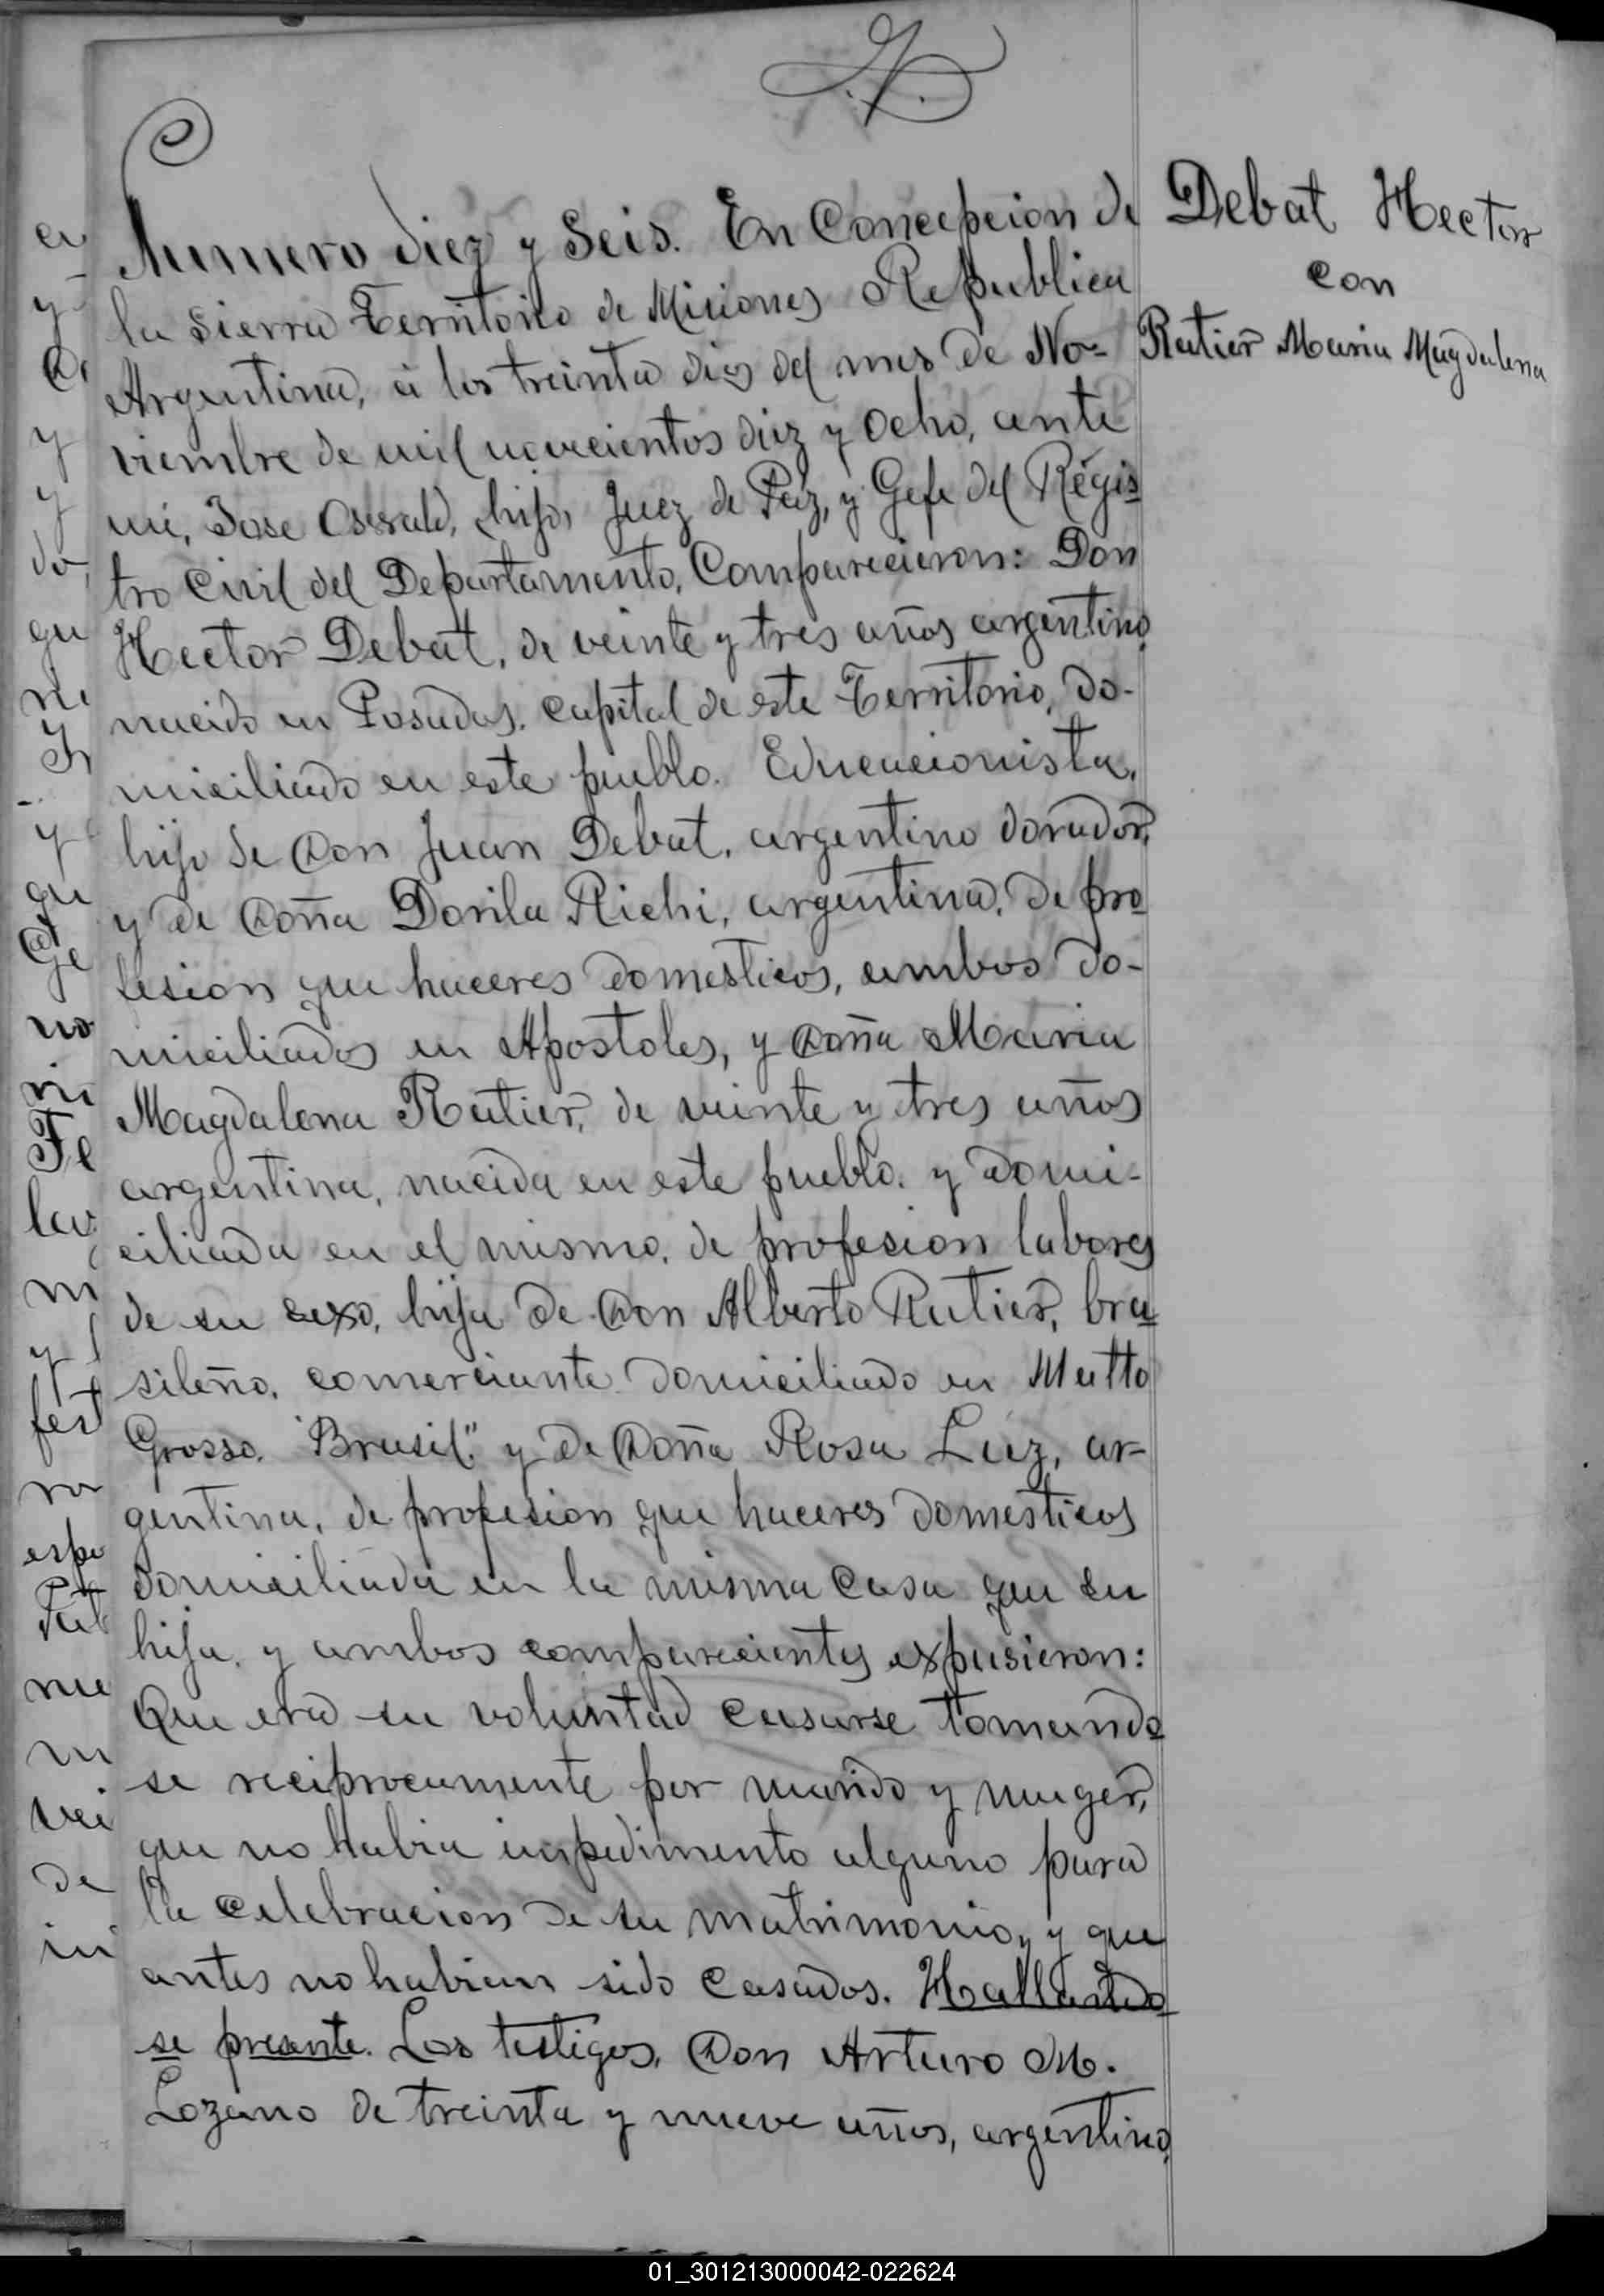 Numero diez y Seis. En Concepcion de
la Sierra Territorio de Misiones Republica
Argentina, á los treinta dias del mes de No-
viembre de mil novecientos diez y ocho, ante
mi, Jose hijo, Juez de Paz, y Gefe del Regis
tro Civil del Departamento, Comparecieron: Don
Hector Debat, de veinte y tres años argentino,
nacido en Posadas, capital de este Territorio, do-
miciliado en este pueblo. Educacionista,
hijo de Don Juan Debat, argentino dorador,
y de Doña Dorila Richi, argentina, de pro
fesion que haceres domesticos, ambos do-
miciliados en Apostoles, y Doña Maria
Magdalena Ratier, de veinte y tres años
argentina, nacida en este pueblo, y domi-
ciliada en el mismo, de profesion labores
de su sexo, hija de Don Alberto Ratier, bra
sileño, comerciante domiciliado en Matto
Grosso. "Brasil." y de Doña Rosa Luz, ar-
gentina, de profesion que haceres domesticos
domiciliada en la misma casa que su
hija, y ambos comparecientes expusieron:
Que era su voluntad casarse tomando
se reciprocamente por marido y muger,
que no habia impedimento alguno para
la celebracion de su matrimonio, y que
antes no habian sido casados. Hallando
se presente. Los testigos, Don Arturo M.
Lozano de treinta y nueve años, argentino,
Debat Hector
con
Ratier Maria Magdalena
01_301213000042-022624